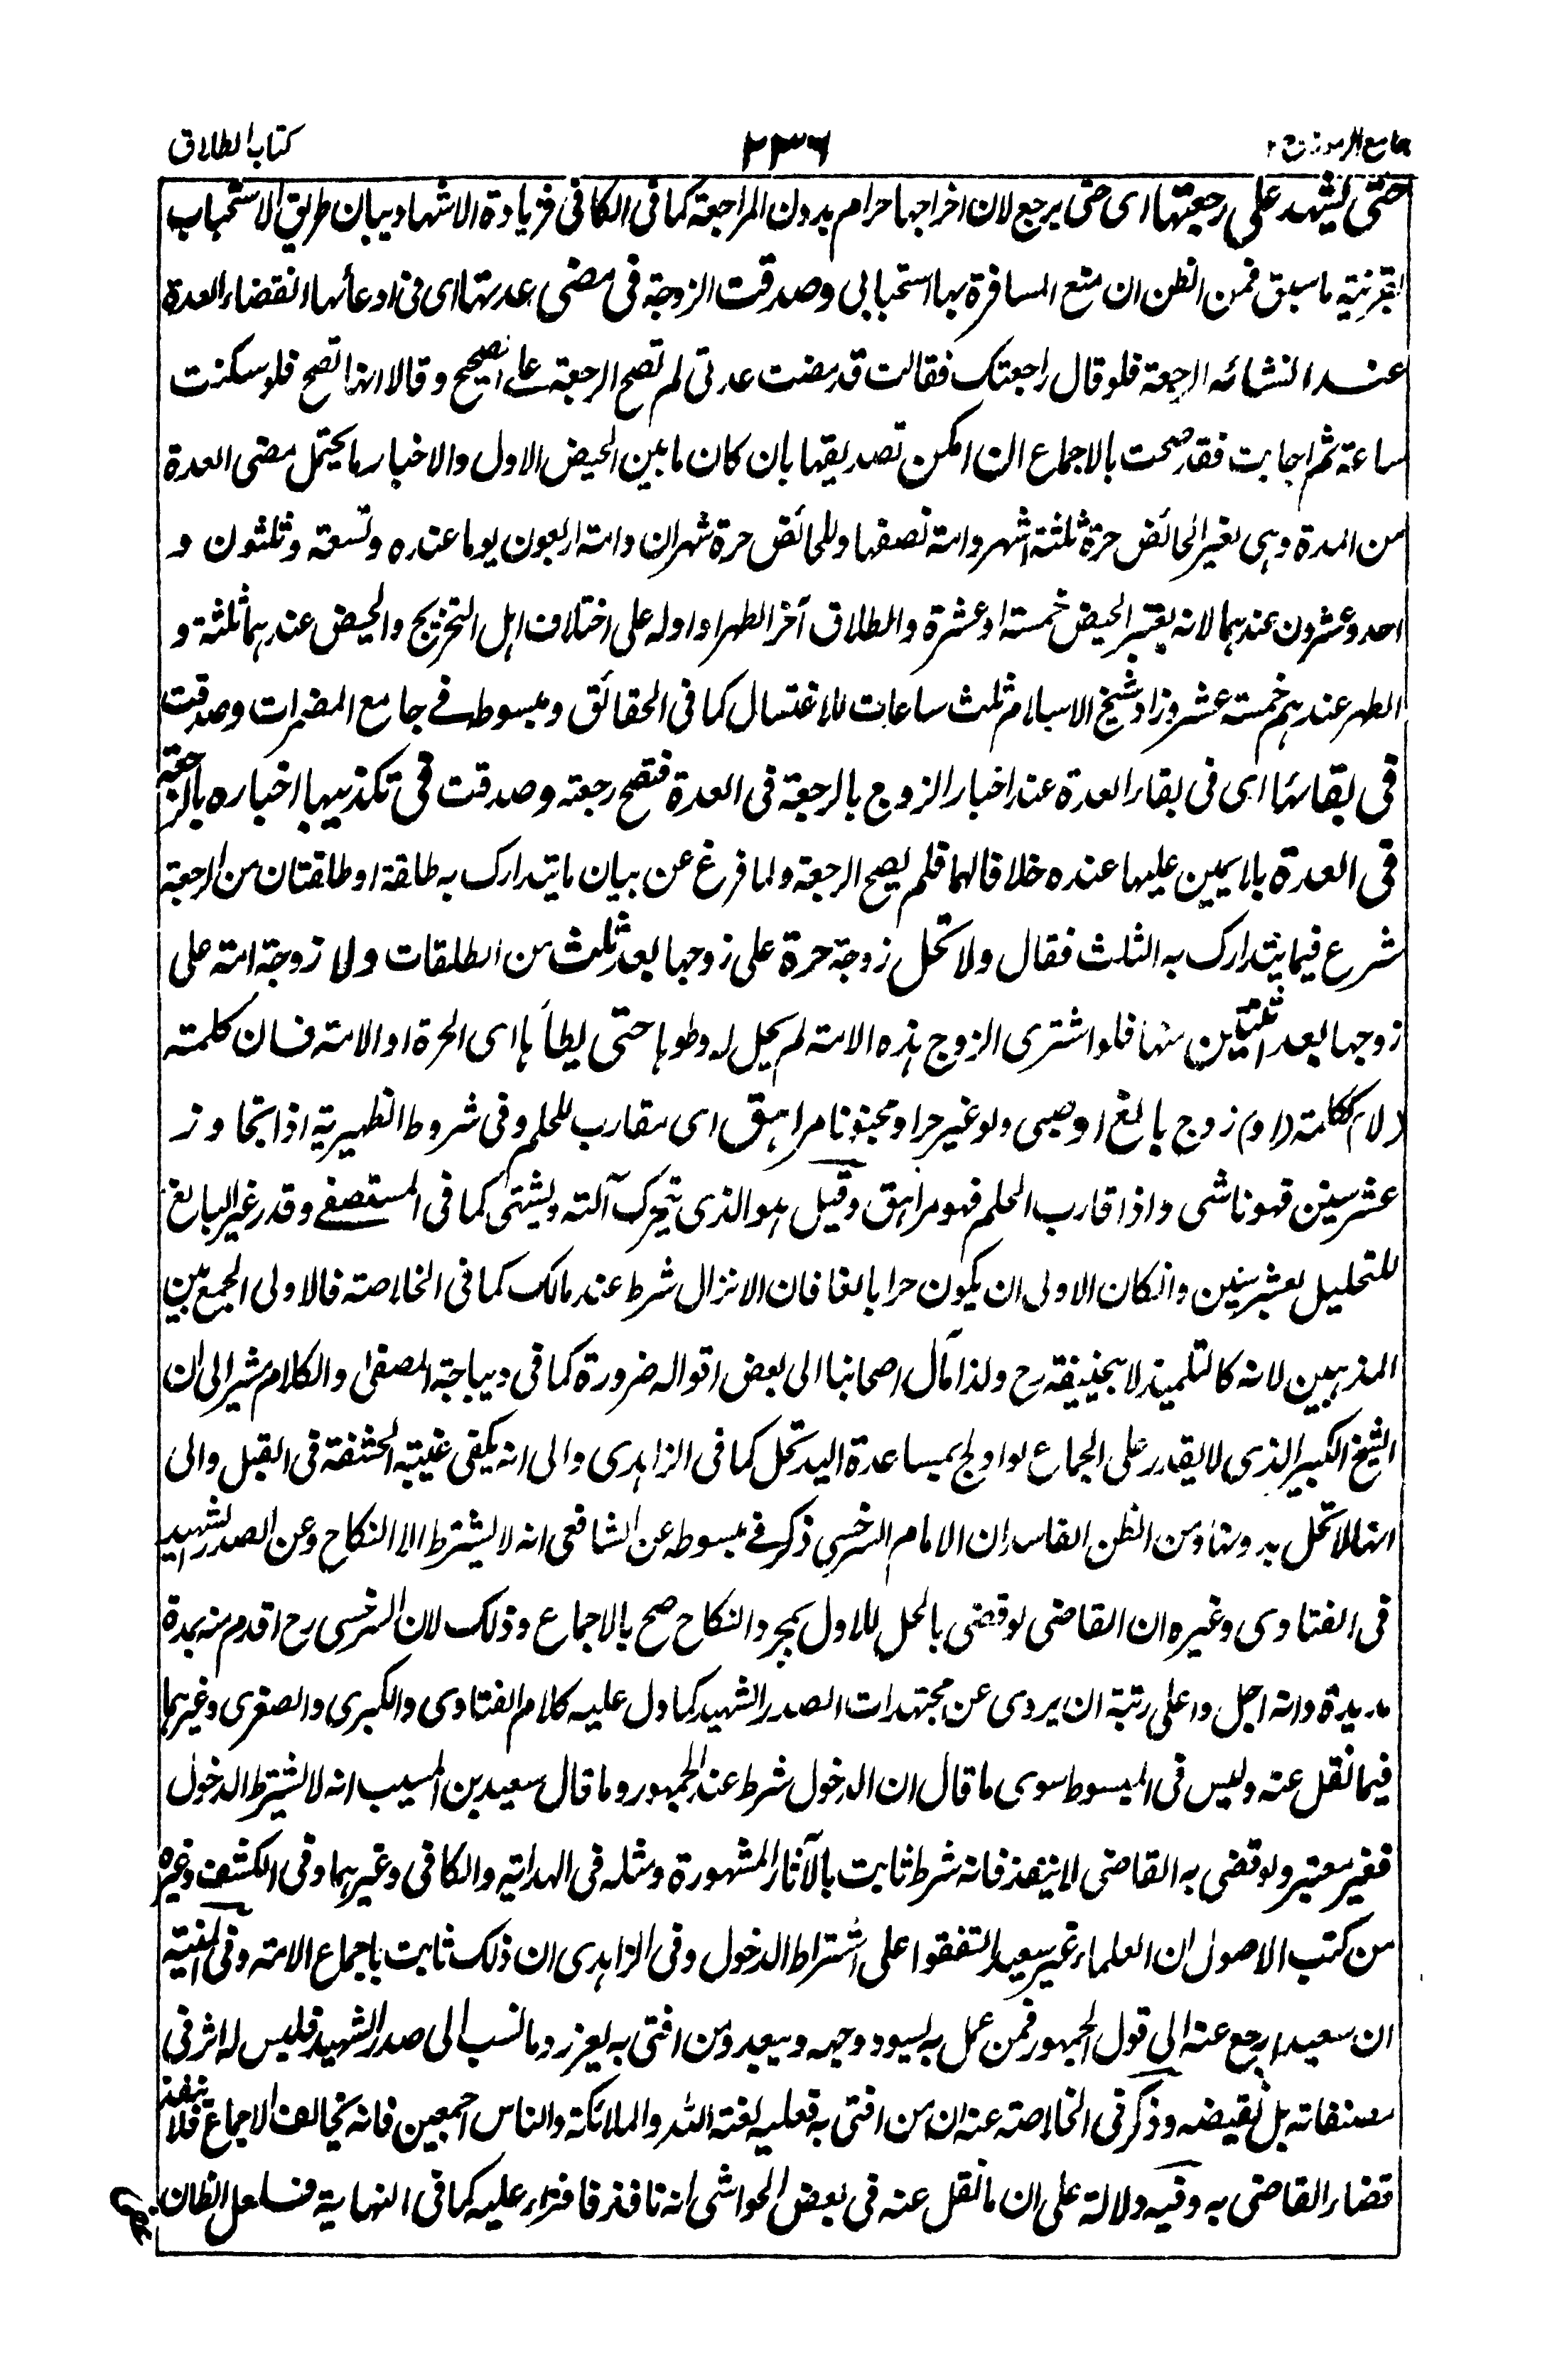 جامع الرموز ج ٢
٢٣٦
كتاب الطلاق
حتى يشهد على رجعتها اى حتى يرجع لان اخراجها حرام بدون المراجعة كما فى الكافى فزيادة الاشهاد بيان طريق الاستحباب
بقرينة ما سبق فمن الظن ان منع المسافرة بها استحبابى وصدقت الزوجة فى مضى عدتها اى فى ادعائها انقضاء العدة
عند انشائه الرجعة فلو قال راجعتك فقالت قد مضت عدتى لم تصح الرجعة على الصحيح وقالا انها تصح فلو سكتت
ساعة ثم اجابت فقد صحت بالاجماع ان امكن تصديقها بان كان ما بين الحيض الاول والاخبار ما يحتمل مضى العدة
من المدة وهى لغير الحائض حرة ثلثة اشهر وامة نصفها وللحائض حرة شهران وامة اربعون يوما عنده وتسعة وثلثون و
احد وعشرون عندهما لانه يعتبر الحيض خمسة او عشرة والطلاق آخر الطهر او اوله على اختلاف اهل التخريج والحيض عندهما ثلثة و
الطهر عندهم خمسة عشر وزاد شيخ الاسلام ثلث ساعات للاغتسال كما فى الحقائق ومبسوط فى جامع المضمرات وصدقت
فى بقائها اى فى بقاء العدة عند اخبار الزوج بالرجعة فى العدة فتصح رجعته وصدقت فى تكذيبها اخباره بالرجعة
فى العدة بلا يمين عليها عنده خلافا لهما فلم يصح الرجعة ولما فرغ عن بيان ما يتدارك به طلقة او طلقتان من الرجعة
شرع فيما يتدارك به الثلث فقال ولا تحل زوجة حرة على زوجها بعد ثلث من الطلقات ولا زوجة امة على
زوجها بعد ثنتين منها فلو اشترى الزوج هذه الامة لم يحل له وطؤها حتى يطأها اى الحرة او الامة فان كلمة
(لا) ككلمة (او) زوج بالغ او صبى ولو غير حر او مجنونا مراهق اى مقارب للحلم وفى شروط الظهيرية اذا تجاوز
عشر سنين فهو ناشى واذا قارب الحلم فهو مراهق وقيل هو الذى يتحرك آلته ويشتهى كما فى المستصفى وقدر غير البالغ
للتحليل بعشر سنين وان كان الاولى ان يكون حرا بالغا فان الانزال شرط عند مالك كما فى الخلاصة فالاولى الجمع بين
المذهبين لانه كالتلميذ لابيحنيفة رح ولذا مال اصحابنا الى بعض اقواله ضرورة كما فى ديباجة المصفى والكلام مشير الى ان
الشيخ الكبير الذى لا يقدر على الجماع لو اولج بمساعدة اليد تحل كما فى الزاهدى والى انه يكفى غيبة الحشفة فى القبل والى
انها لا تحل بدونها ومن الظن الفاسد ان الامام السرخسى ذكر فى مبسوطه عن الشافعى انه لا يشترط الا النكاح وعن الصدر الشهيد
فى الفتاوى وغيره ان القاضى لو قضى بالحل للاول بمجرد النكاح صح بالاجماع وذلك لان السرخسى رح اقدم منه بمدة
مديدة وانه اجل واعلى رتبة ان يروى عن مجتهدات الصدر الشهيد كما دل عليه كلام الفتاوى والكبرى والصغرى وغيرها
فيما نقل عنه وليس فى المبسوط سوى ما قال ان الدخول شرط عند الجمهور وما قال سعيد بن المسيب انه لا يشترط الدخول
فغير معتبر ولو قضى به القاضى لا ينفذ فانه شرط ثابت بالآثار المشهورة ومثله فى الهداية والكافى وغيرهما وفى الكشف وغيره
من كتب الاصول ان العلماء غير سعيد اتفقوا على اشتراط الدخول وفى الزاهدى ان ذلك ثابت باجماع الامة وفى المنية
ان سعيدا رجع عنه الى قول الجمهور فمن عمل به يسود وجهه ويبعد ومن افتى به يعزر وما نسب الى صدر الشهيد فليس له اثر فى
مصنفاته بل نقيضه وذكر فى الخلاصة عنه ان من افتى به فعليه لعنة الله والملائكة والناس اجمعين فانه يخالف الاجماع فلا ينفذ
قضاء القاضى به وفيه دلالة على ان ما نقل عنه فى بعض الحواشى انه نافذ فافتراء عليه كما فى النهاية فلعل الظان